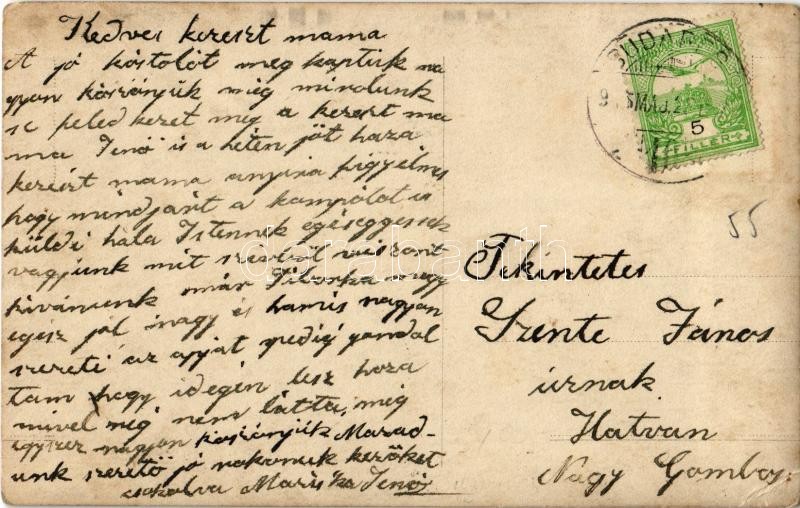 Kedves kereszt mama
A jó kóstolót meg kaptuk na
gyon köszönjük még mindunk
se feled keret meg a kereszt ma
ma Jenő is a héten jöt haza
kereszt mama annyira figyelmes
hogy mindjárt a kompólot is
küldi hála Istennek egéseggessek
vagyunk mit szivből viszont
kivánunk már Tiborka nagy
egész jól nagy és hamis nagyon
szereti az apját pedig gondol
tam hogy idegen lesz hoza
mivel még nem látta, még
egyszer nagyon köszönjük Marad-
unk szerető jó rokonuk kerőket
csokolva Mariska Jenő
BUDAPES
5
FILLÉR
55
Tekintetes
Szente János
úrnak
Hatvan
Nagy Gombos
darabanth